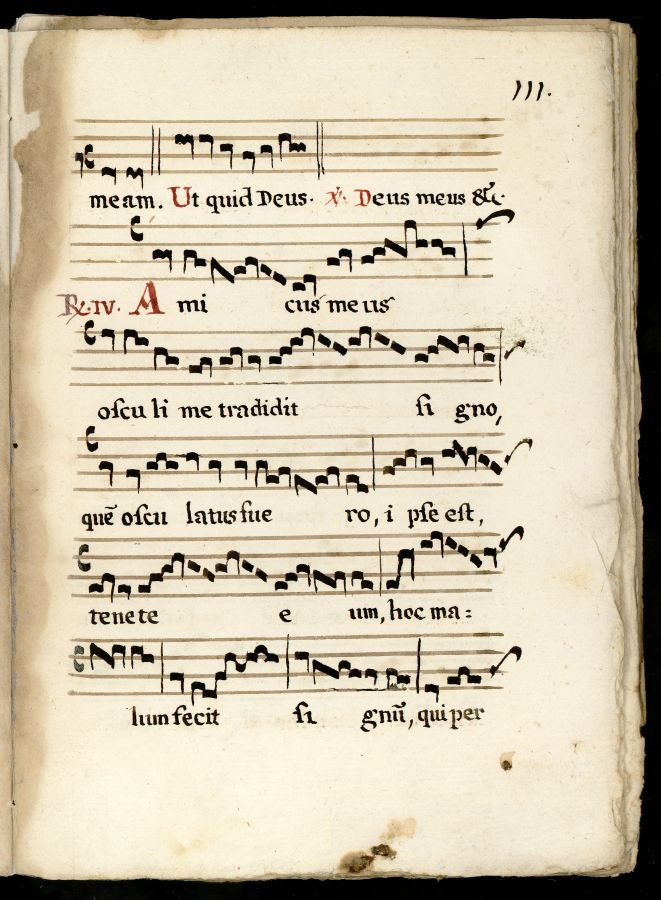 111.
meam. Ut quid Deus. ℣. Deus meus &c.
℟. IV. Ami cus meus
oſculi me tradidit ſi gno,
quē oſculatus fue ro, ipſe eſt,
tenete e um, hoc ma=
lum fecit ſi gnū, qui per